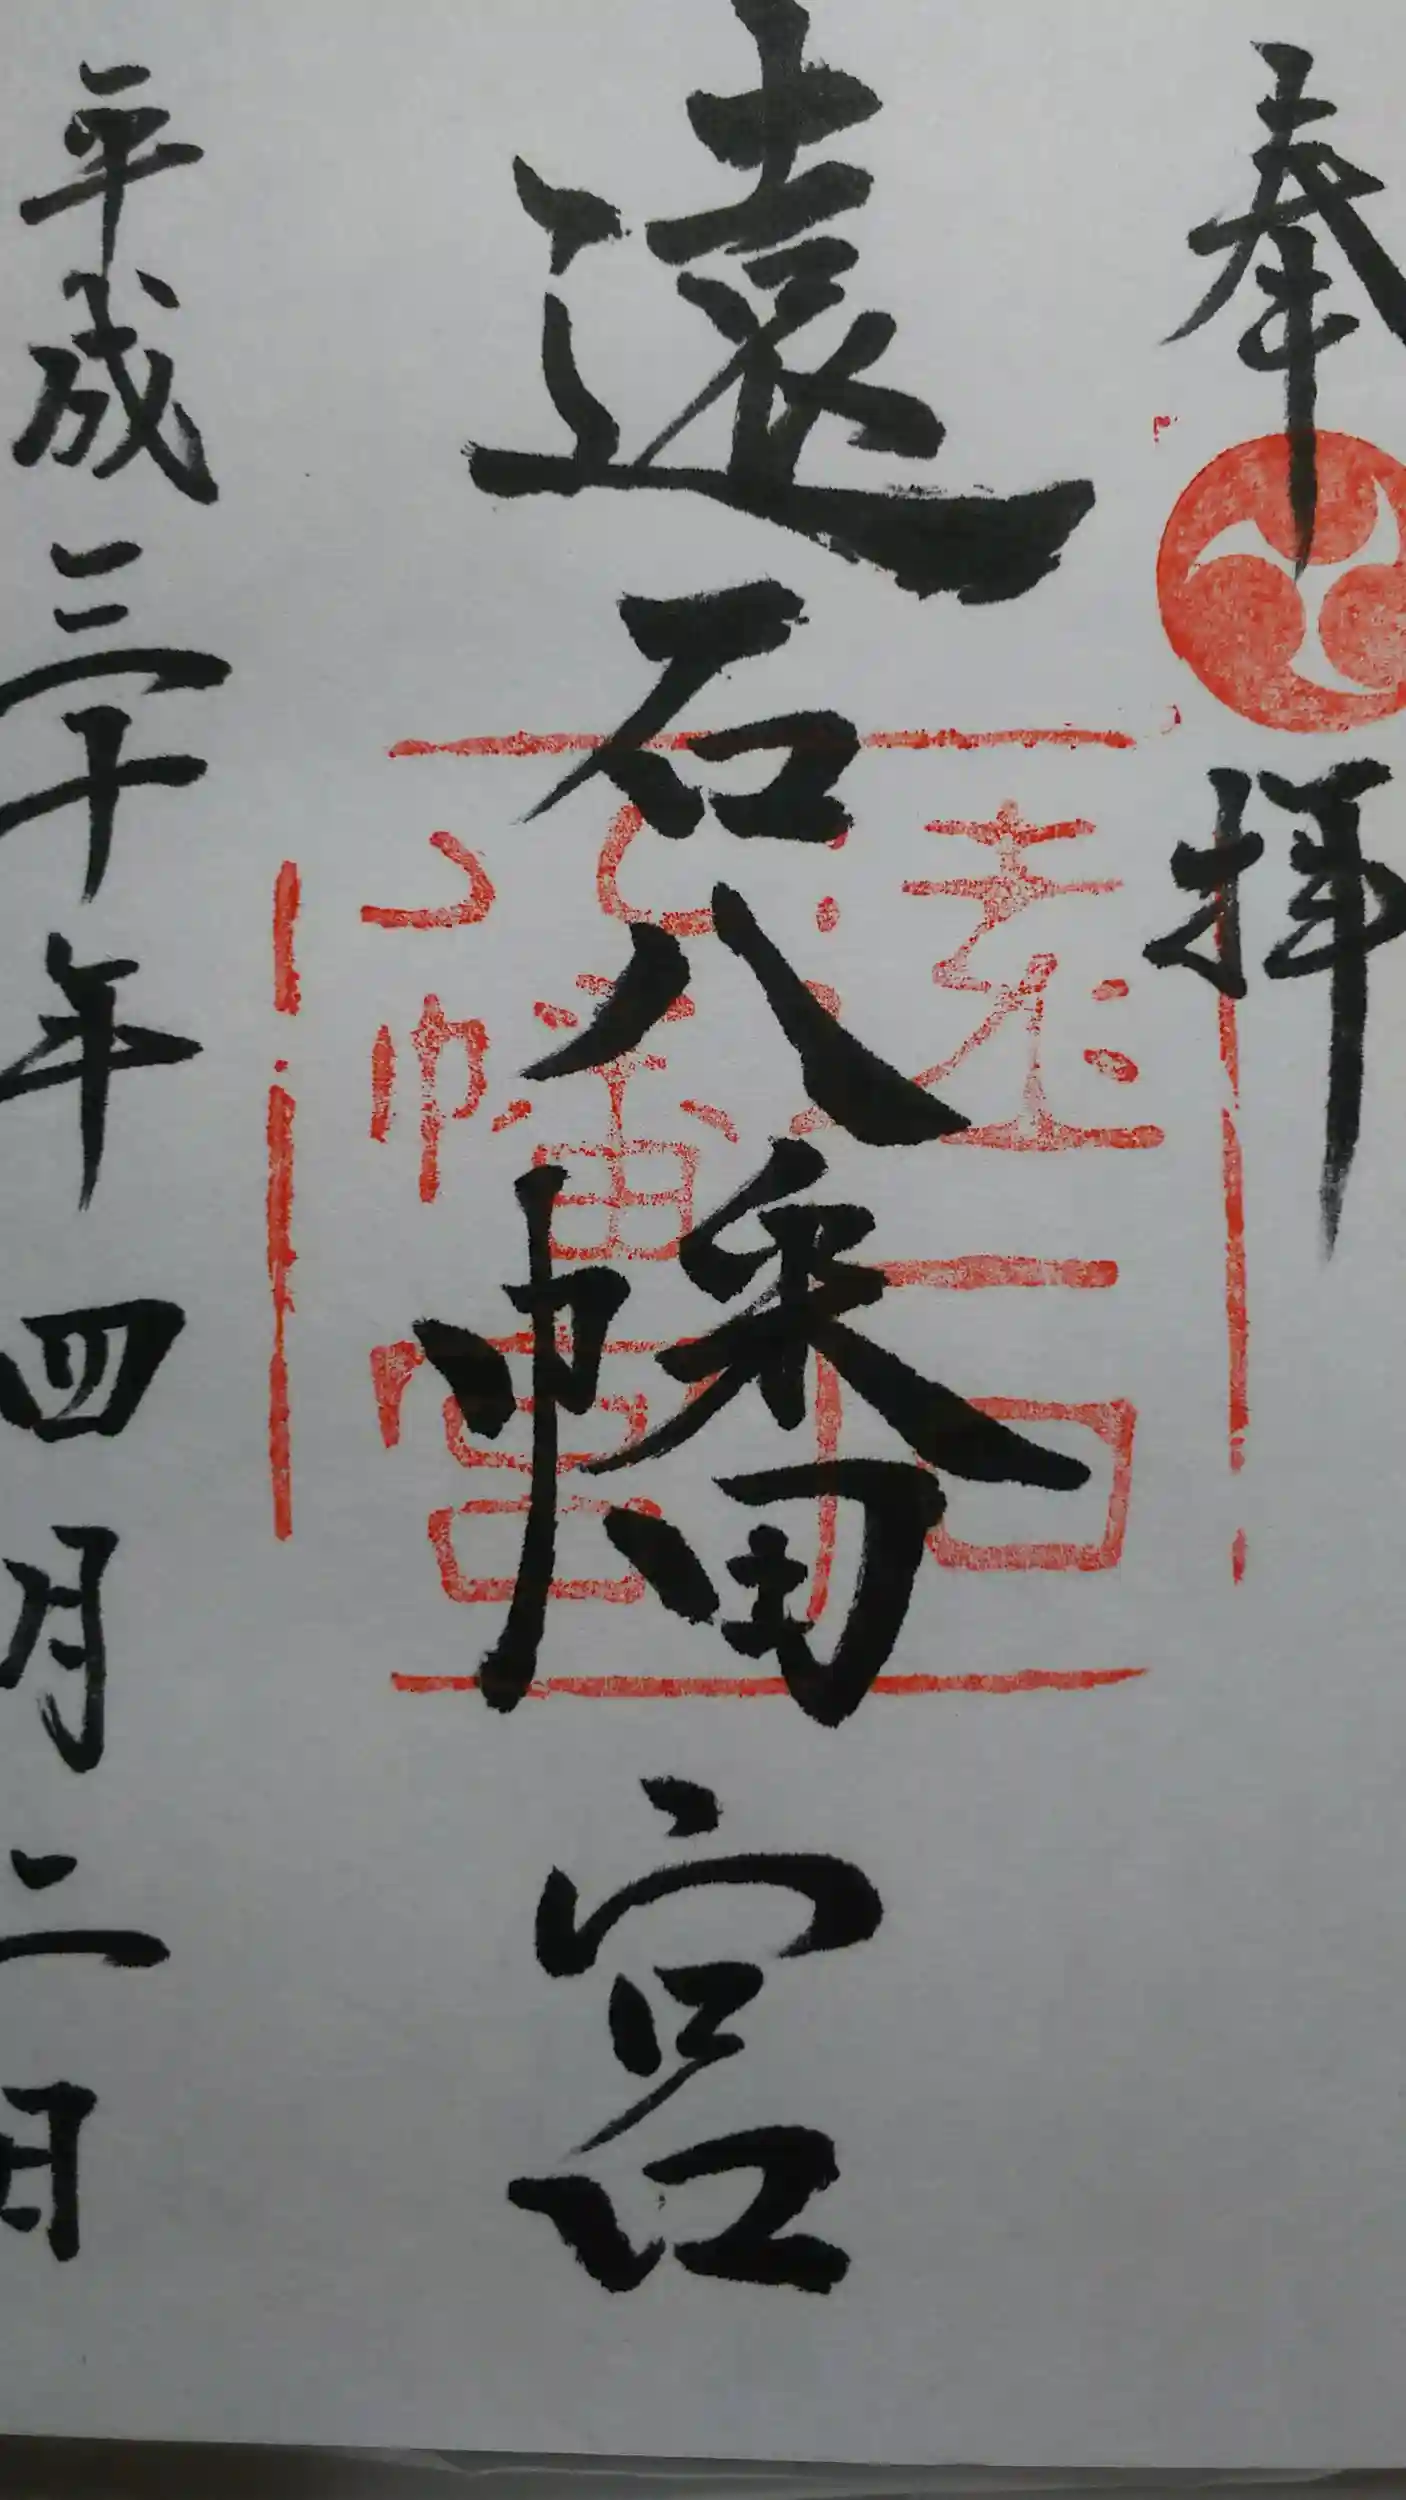 奉拝
遠石八幡宮
平成三十年四月二日
遠石
八幡宮